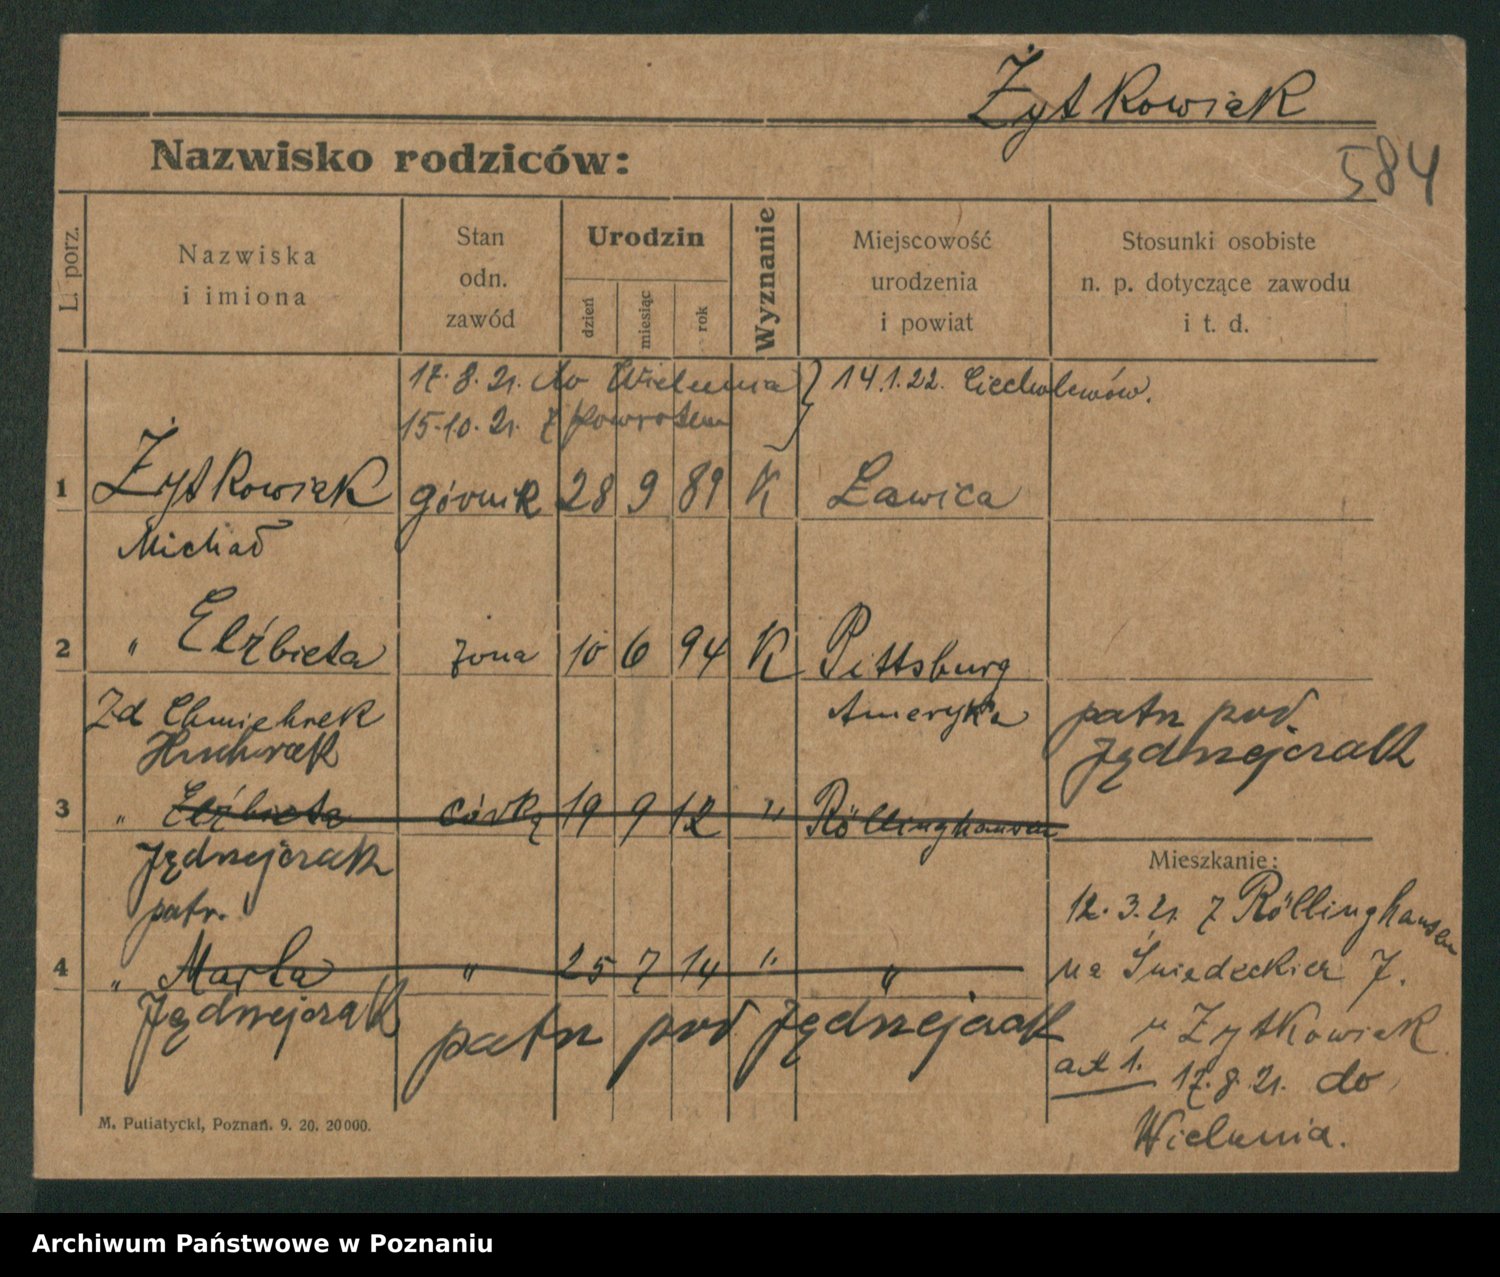 Żytkowiak
Nazwisko rodziców:
584
L. porz.
Nazwiska
i imiona
Stan
odn.
zawód
Urodzin
dzień
miesiąc
rok
Wyznanie
Miejscowość
urodzenia
i powiat
Stosunki osobiste
n. p. dotyczące zawodu
i t. d.
17. 8. 21. do Wielunia } 14.1.22. Ciecholewów.
15.10. 21. z powrotem
1 Żytkowiak górnik 28 9 89 K Ławica
Michał
2 " Elżbieta żona 10 6 94 K Pittsburg
Zd Ameryka patrz pod
Jędrzejczak
3 " Elżbieta córka 19 9 12 " Röllinghausen
Jędrzejczak
patr.
Mieszkanie:
12. 3. 21. z Röllinghausen
4 " Marta " 25 7 14 " "
na Śniadeckich 7.
Jędrzejczak
patrz pod Jędrzejczak
Żytkowiak
ad 1. 17. 8. 21. do
Wielunia.
M. Putiatycki, Poznań. 9. 20. 20000.
Archiwum Państwowe w Poznaniu